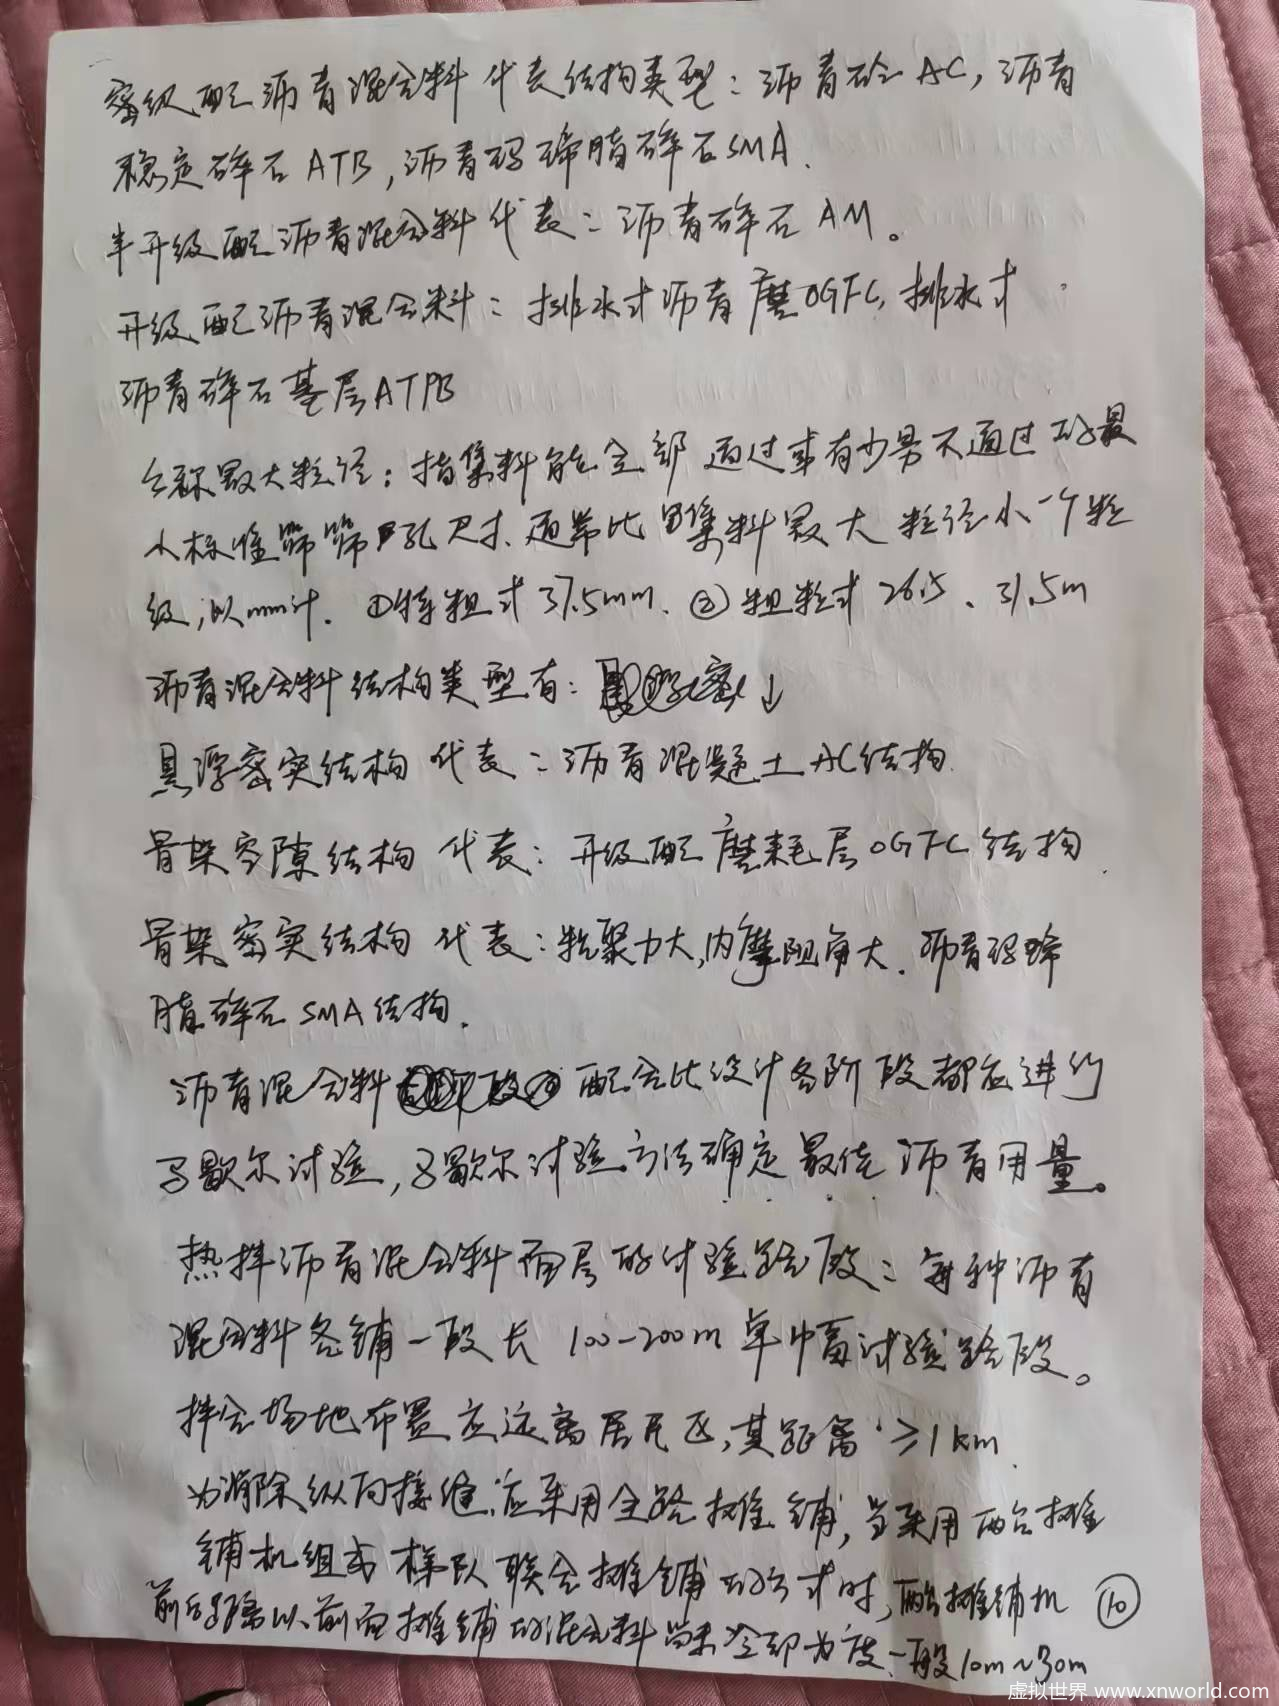 密级配沥青混合料代表结构类型：沥青砼AC，沥青
稳定碎石ATB，沥青玛碲脂碎石SMA.
半开级配沥青混合料代表：沥青碎石AM。
开级配沥青混合料：排水式沥青磨OGFC，排水式
沥青碎石基层ATPB
公称最大粒径：指集料能全部通过或有少量不通过的最
小标准筛筛孔尺寸、通常比集料最大粒径小一个粒
级，以mm计. ①特粗式37.5mm. ②粗粒式26.5、31.5m
沥青混合料结构类型有：↓
悬浮密实结构 代表：沥青混凝土AC结构.
骨架空隙结构 代表：开级配磨耗层OGFC结构
骨架密实结构 代表：粘聚力大，内摩阻角大.沥青玛碲
脂碎石SMA结构.
沥青混合料配合比设计各阶段都应进行
马歇尔试验，马歇尔试验方法确定最佳沥青用量。
热拌沥青混合料面层的试验路段：每种沥青
混合料各铺一段长100-200m单幅试验路段。
拌合场地布置应远离居民区，其距离≥1km.
为消除纵向接缝，应采用全路摊铺，当采用两台摊
铺机组成梯队联合摊铺的方式时，两台摊铺机
前后距离以前面摊铺的混合料尚未冷却为度，一般10m~30m
⑩
虚拟世界 www.xnworld.com